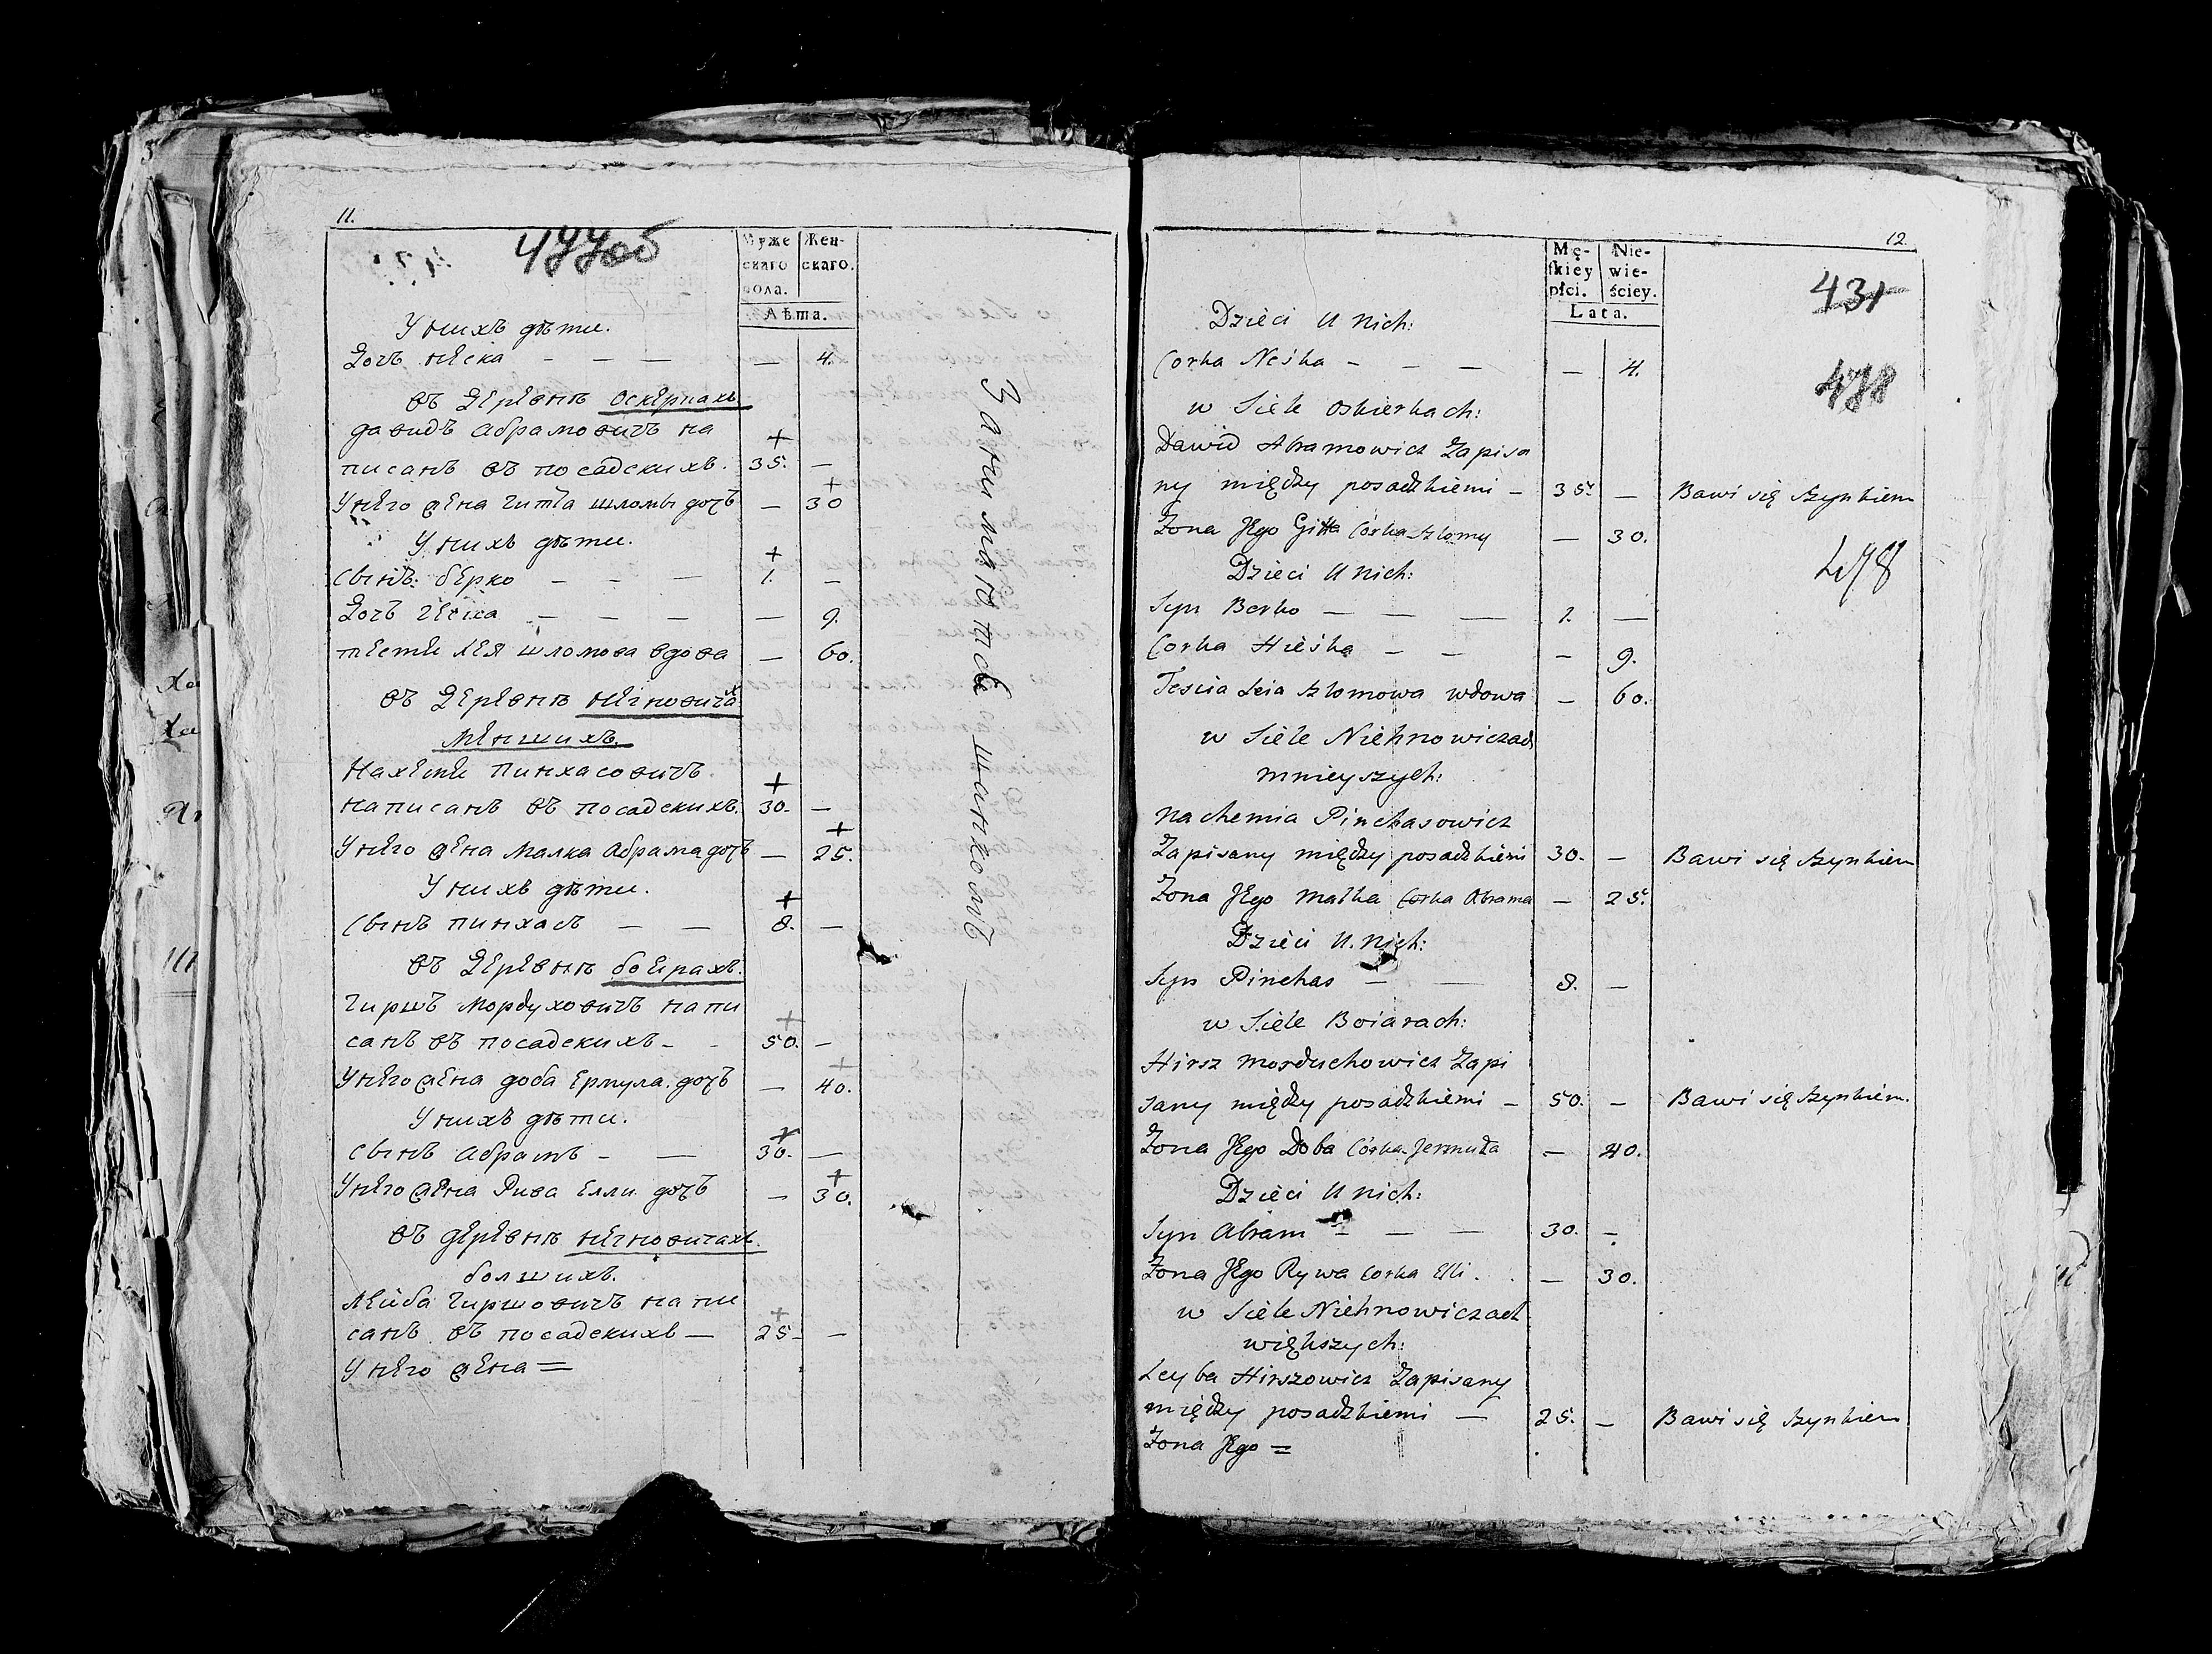 11.
477об
Мужескаго пола.
Женскаго.
Лѣта.
У нихъ дѣти.
Дочъ неска — — — — 4.
въ Деревнѣ Оскерках
давидъ абрамовичъ на
писанъ въ посадскихъ. 35. —
У него жена гитта шломы дочъ — 30
У нихъ дѣти.
Сынъ: берко — — — 1. —
Дочъ геска — — — — 9.
тестя лея шломова вдова — 60.
въ Деревнѣ негновичах
менших.
Нахемя пинхасовичъ
написанъ въ посадскихъ. 30. —
У него жена малка абрама дочъ — 25.
У нихъ дѣти.
Сынъ пинхасъ — — 8. —
въ Деревнѣ боярах.
гиршъ мордуховичъ напи
санъ въ посадскихъ — 50. —
У него жена доба ермула дочъ — 40.
У нихъ дѣти.
Сынъ абрамъ — — 30. —
У него жена Рива елли дочъ — 30.
въ деревнѣ негновичахъ.
болшихъ.
лейба гиршовичъ напи
санъ въ посадскихъ — 25 — —
У него жена =
Занимаются шинкомъ
12.
Mę-
skiey
płci.
Nie-
wie-
ściey.
Lata.
431
478
478
Dzieci u nich:
Corka Neśka — — — — 4.
w Siele Oskierkach:
Dawid Abramowicz Zapisa
ny między posadzkiemi — 35. — Bawi się szynkiem
Zona Jego Gitta Córka Szlomy — 30.
Dzieci u nich:
Syn Berko — — — 1. —
Corka Hieśka — — — 9.
Tescia Leia Szlomowa wdowa — 60.
w Siele Niehnowiczach
mnieyszych:
Nachemia Pinchasowicz
Zapisany między posadzkiemi 30. — Bawi się szynkiem
Zona Jego Malka Corka Abrama — 25.
Dzieci u nich:
Syn Pinchas — — 8. —
w Siele Boiarach:
Hirsz Morduchowicz Zapi
sany między posadzkiemi — 50. — Bawi się szynkiem.
Zona Jego Doba Córka Jermuła — 40.
Dzieci u nich:
Syn Abram — — — 30. —
Zona Jego Rywa Corka Elli . . — 30.
w Siele Niehnowiczach
większych:
Leyba Hirszowicz Zapisany
między posadzkiemi — 25. — Bawi się szynkiem
Zona Jego =